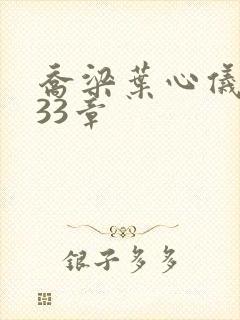 乔梁叶心仪
33章
银子多多